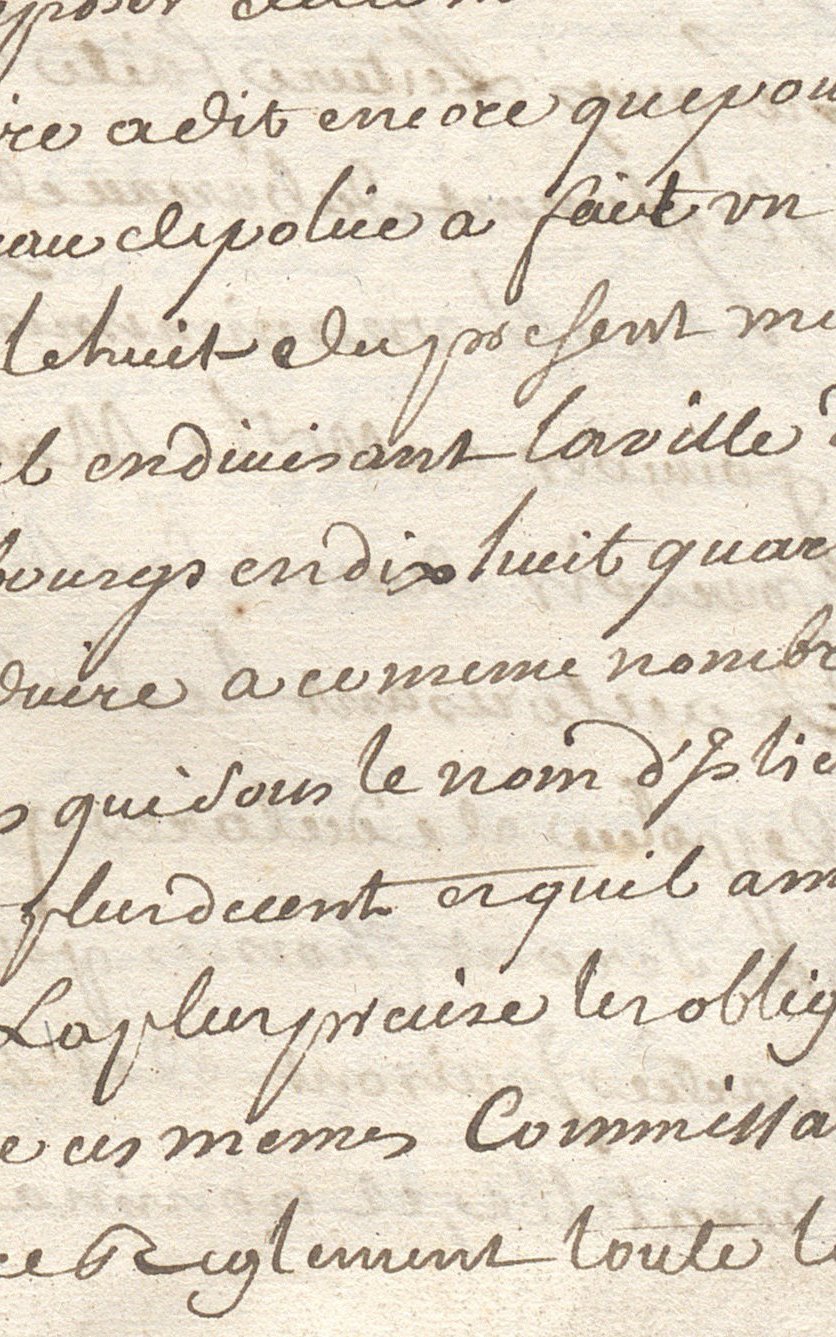 ire a dit encore que pou
eau de police a fait un
le huit du present mo
el en divisant la ville
bourgs en dix huit quar
duire a ce meme nombre
s qui sous le nom d'Islie
plus de cent et quil am
La plus precise les oblig
e ces memes Commissa
ce Reglement toute l